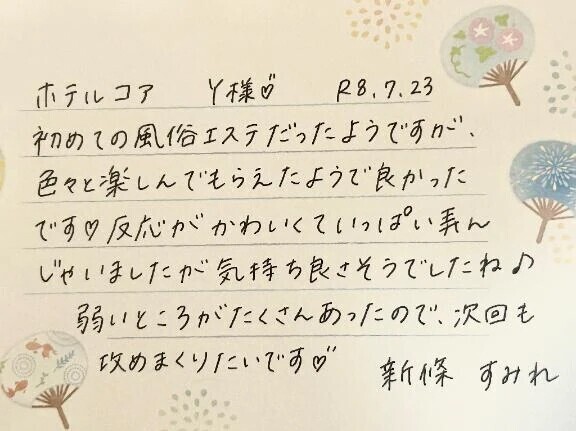 ホテルコア Y様♡ R8.7.23
初めての風俗エステだったようですが、
色々と楽しんでもらえたようで良かった
です♡反応がかわいくていっぱい弄ん
じゃいましたが気持ち良さそうでしたね♪
弱いところがたくさんあったので、次回も
攻めまくりたいです♡
新條 すみれ